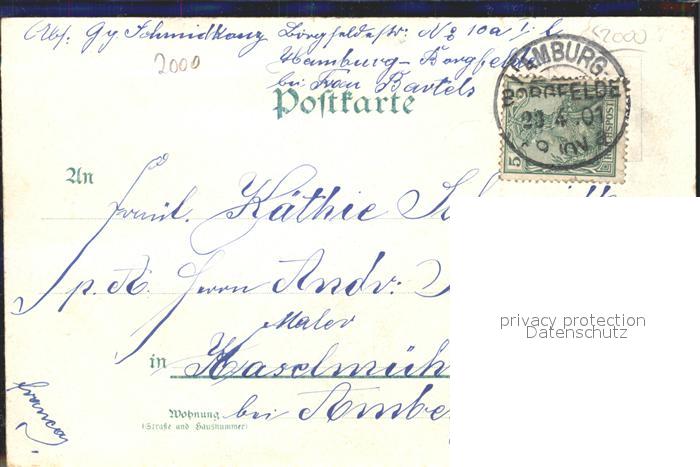 Abs. Gg Schmidkonz Borgfelderstr. No 10a I. l.
Hamburg-Borgfelde
bei Frau Bartels
2000
2000
Postkarte
HAMBURG
BORGFELDE
4.01
5
REICHSPOST
An
Fräul. Käthie
p. A. Herrn Andr.
Maler
in Haselmüh
Wohnung bei Ambe
(Straße und Hausnummer)
franco
privacy protection
Datenschutz